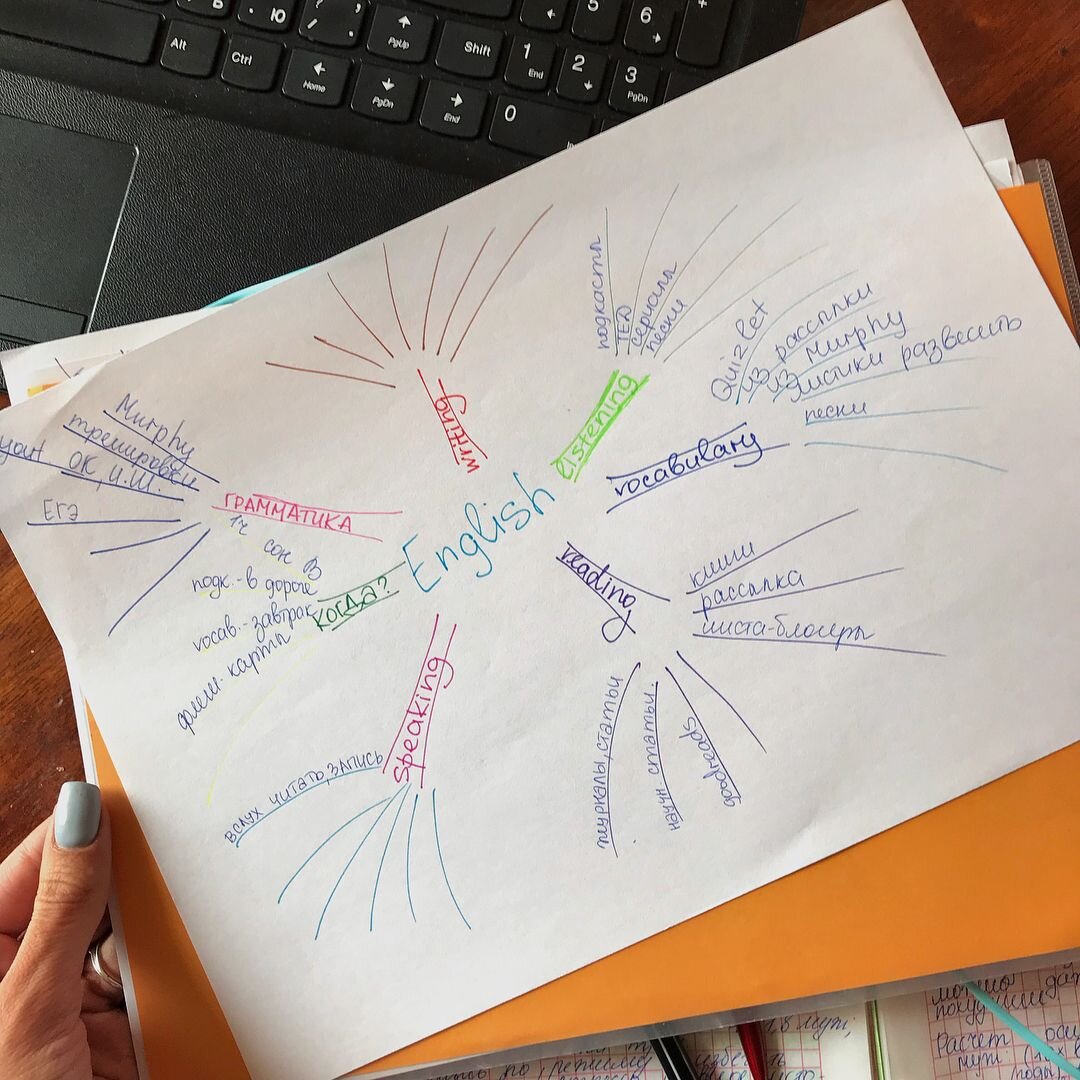 Alt
Ctrl
Home
PgUp
PgDn
End
Shift
1
End
2
3
PgDn
0
5
6
English
writing
listening
подкасты
TED
сериалы
песни
vocabulary
Quizlet
из рассылки
из Murphy
листики развесить
песни
reading
книги
рассылка
инста-блогеры
журналы, статьи
научн статьи
goodreads
speaking
вслух читать, запись
когда?
1ч
сон 8
подк. - в дороге
vocab. - завтрак
флеш-карты
ГРАММАТИКА
Murphy
тренировки
ЕГЭ
можно
похудении
Расчет